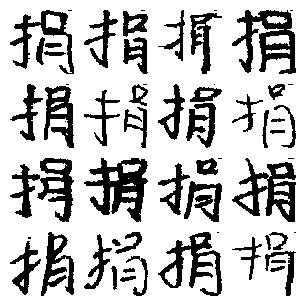 捐捐捐捐
捐捐捐捐
捐捐捐捐
捐捐捐捐